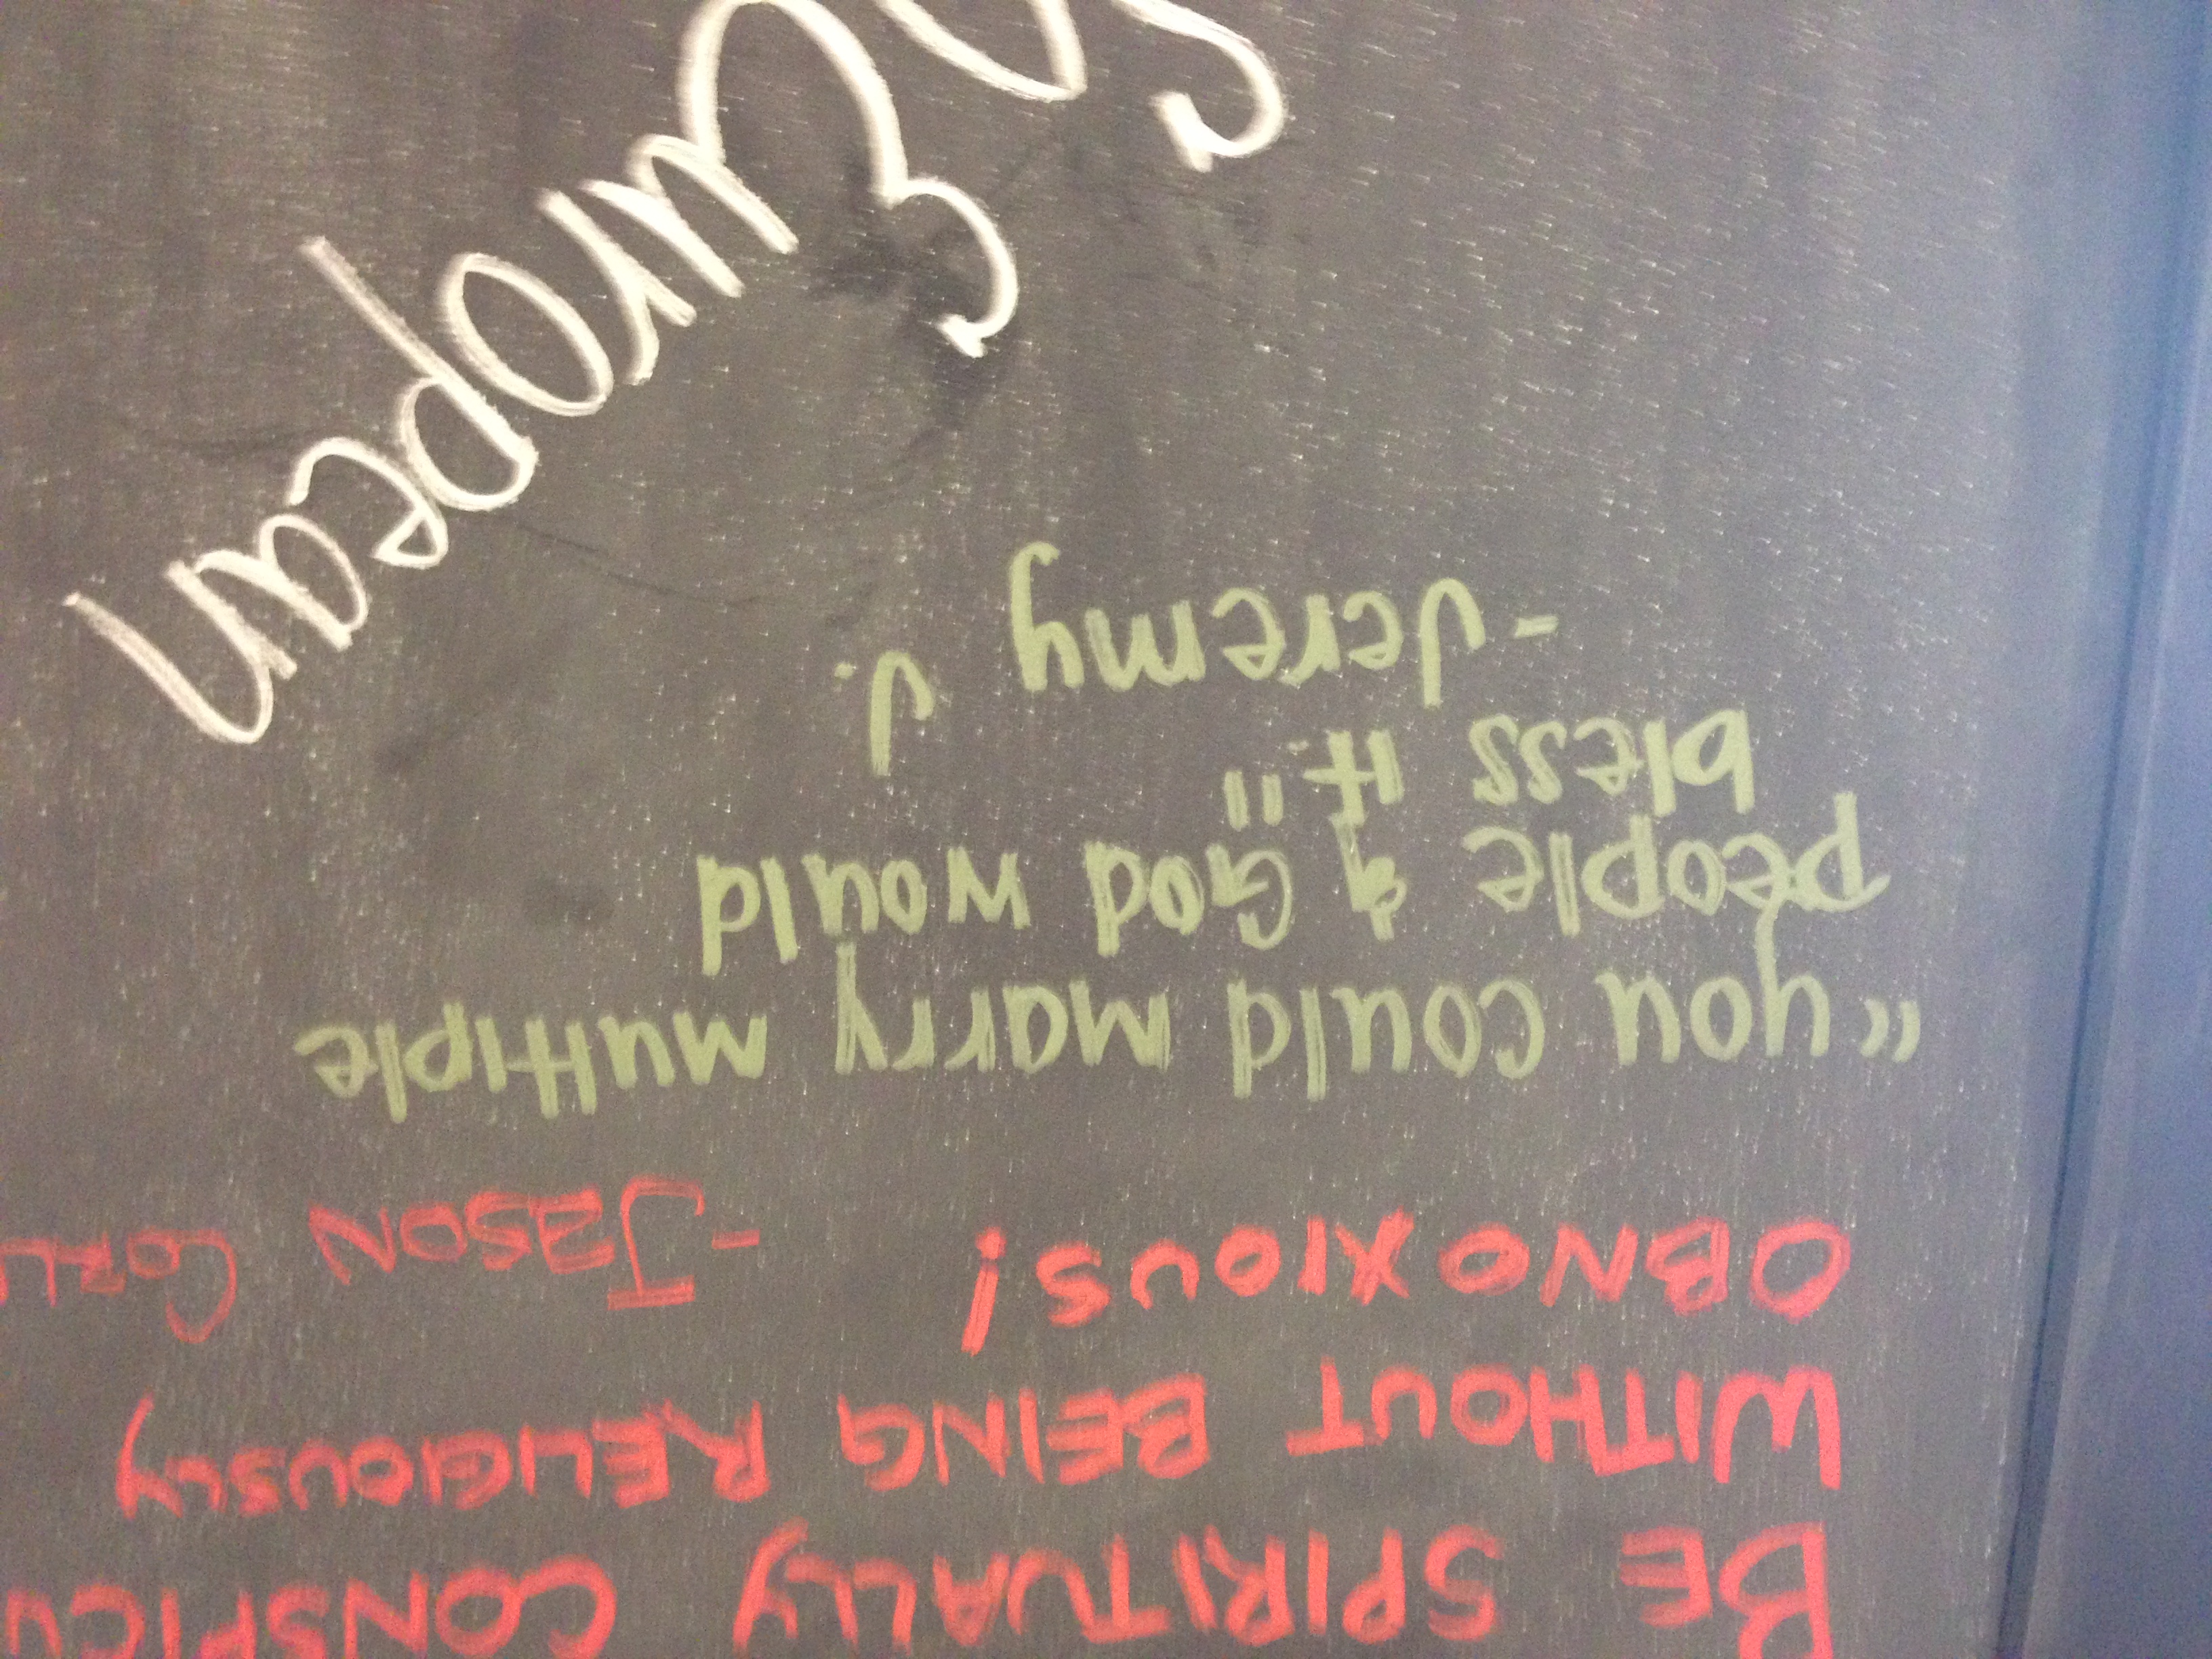 BE SPIRITUALLY CONSPICU
WITHOUT BEING RELIGIOUSLY
OBNOXIOUS!
-JASON
"you could marry multiple
people & God would
bless it."
-Jeremy J.
European